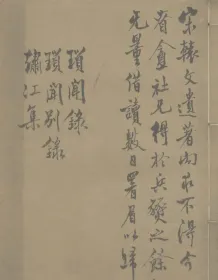 宋轅文遺著向求不得今
省盦社兄得於兵燹之餘
无量借讀數日署眉以歸
瑣聞錄
瑣聞別錄
繡江集